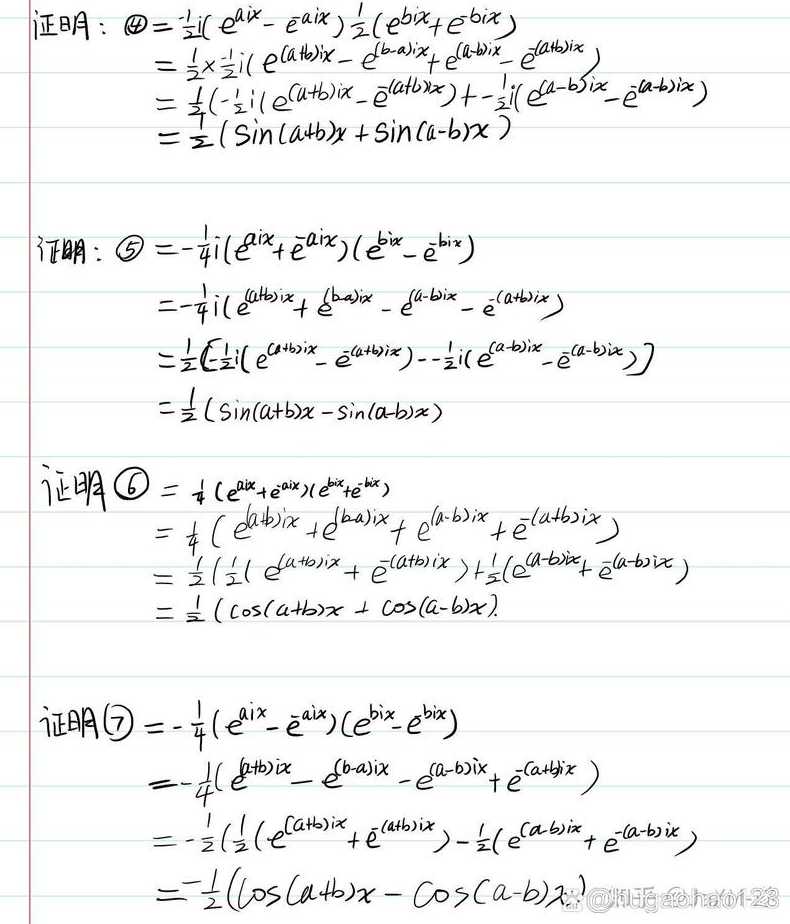 证明：④ = -½i(e^{aix} - e^{-aix}) ½(e^{bix} + e^{-bix})
= ½ × -½i(e^{(a+b)ix} - e^{(b-a)ix} + e^{(a-b)ix} - e^{-(a+b)ix})
= ½(-½i(e^{(a+b)ix} - e^{-(a+b)ix}) + -½i(e^{(a-b)ix} - e^{-(a-b)ix})
= ½(sin(a+b)x + sin(a-b)x)
证明：⑤ = -¼i(e^{aix} + e^{-aix})(e^{bix} - e^{-bix})
= -¼i(e^{(a+b)ix} + e^{(b-a)ix} - e^{(a-b)ix} - e^{-(a+b)ix})
= ½[-½i(e^{(a+b)ix} - e^{-(a+b)ix}) - -½i(e^{(a-b)ix} - e^{-(a-b)ix})]
= ½(sin(a+b)x - sin(a-b)x)
证明⑥ = ¼(e^{aix} + e^{-aix})(e^{bix} + e^{-bix})
= ¼(e^{(a+b)ix} + e^{(b-a)ix} + e^{(a-b)ix} + e^{-(a+b)ix})
= ½(½(e^{(a+b)ix} + e^{-(a+b)ix}) + ½(e^{(a-b)ix} + e^{-(a-b)ix})
= ½(cos(a+b)x + cos(a-b)x).
证明⑦ = -¼(e^{aix} - e^{-aix})(e^{bix} - e^{-bix})
= -¼(e^{(a+b)ix} - e^{(b-a)ix} - e^{(a-b)ix} + e^{-(a+b)ix})
= -½(½(e^{(a+b)ix} + e^{-(a+b)ix}) - ½(e^{(a-b)ix} + e^{-(a-b)ix})
= -½(cos(a+b)x - cos(a-b)x)